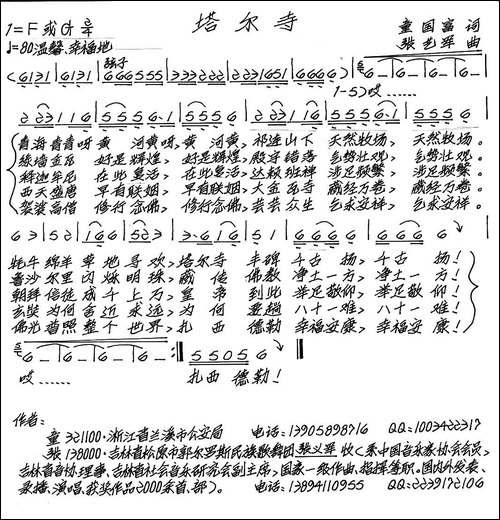 塔尔寺
1=F 或G 2/4
童国富 词
♩=80 温馨、幸福地
张艺军 曲
弦子
(6131 | 6131 | 666555 | 333222 | 221651 | 6666) | 6 _ | _ _ | _ _ | _ _ |
1—5)哎……
223116 | 5556·1 | 5556 | 223116 | 5556·1 | 5556 |
青海青青呀黄 河黄呀,黄 河黄, 祁连山下 天然牧场, 天然牧场。
绿墙金瓦 好是辉煌, 好是辉煌, 殿宇错落 气势壮观, 气势壮观。
释迦牟尼 在此复活, 在此复活, 达赖班禅 涉足频繁, 涉足频繁。
西天盛唐 早有联姻, 早有联姻, 大金瓦寺 藏经万卷, 藏经万卷。
袈裟高僧 修行念佛, 修行念佛, 芸芸众生 乞求安祥, 乞求安祥。
63 | 52 | 166 | 523 | 3·616 | 51 | 51 | 666 | 6666 |
牦牛绵羊 草地寻欢, 塔尔寺 丰碑 千古 扬, 千古 扬!
鲁沙尔里 闪烁明珠, 藏传 佛教 净土一方, 净土一方!
朝拜信徒 成千上万, 皇帝 到此 举足敬仰, 举足敬仰!
玄奘为何 舍近求远, 为何 要趟 八十一难, 八十一难!
佛光普照 整个世界, 扎西 德勒 幸福安康, 幸福安康!
6 _ | _ _ | _ _ | _ _ :‖ 5505 6 ‖
哎…… 扎西 德勒!
作者:
童 321100·浙江省兰溪市公安局 电话:13905898716 QQ:1003422317
张 138000·吉林省松原市郭尔罗斯民族歌舞团张义军 收(系中国音乐家协会会员,
吉林省音协理事、吉林省社会音乐研究会副主席,国家一级作曲、指挥等职。国内外发表、
录播、演唱、获奖作品2000来首、部)。 电话:13894110955 QQ:2239172106